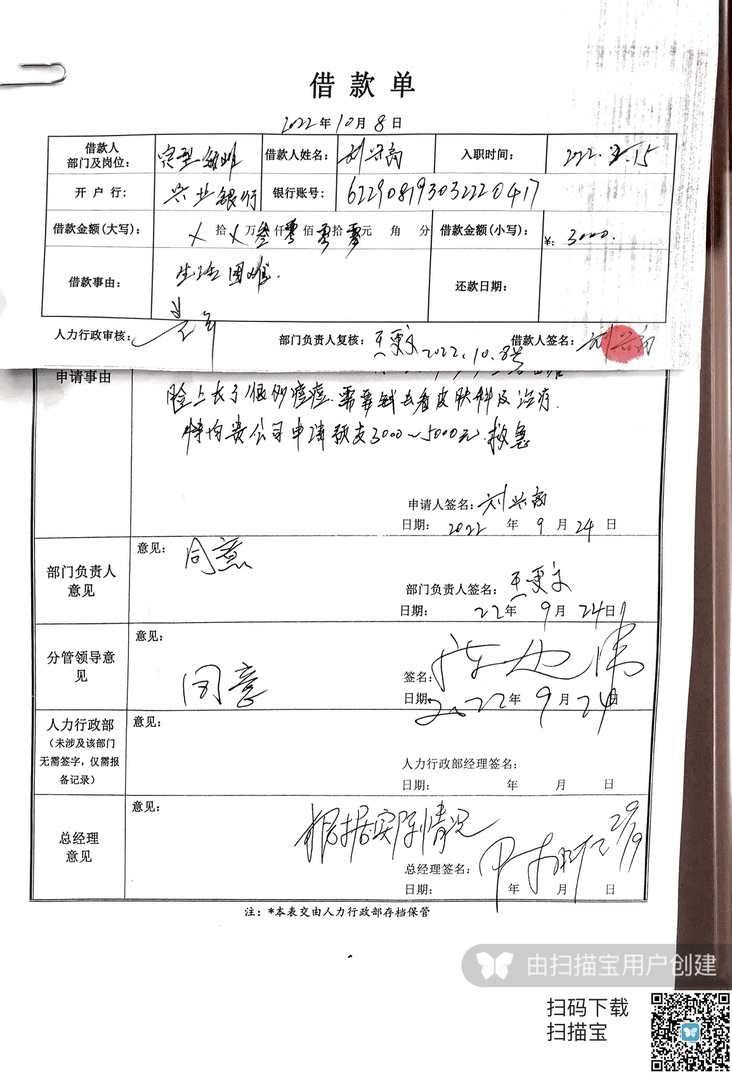 借款单
2022年10月8日
借款人
部门及岗位： 定型 借款人姓名： 刘兴高 入职时间： 2022. .15
开户行： 兴业银行 银行账号： 622908193032220417
借款金额(大写)： 乂拾乂万叁仟零佰零拾零元 角 分 借款金额(小写)： ¥： 3000.
借款事由： 生活困难. 还款日期：
人力行政审核： 部门负责人复核： 借款人签名： 刘兴高
2022.10.8
申请事由
脸上长了很多痘痘.需要钱去看皮肤科及治疗.
特向贵公司申请预支3000~5000元.救急
申请人签名： 刘兴高
日期： 2022 年 9 月 24 日
部门负责人
意见
意见： 同意
部门负责人签名：
日期： 22年 9 月 24日
分管领导意
见
意见：
同意
签名：
日期： 2022年 9 月 24日
人力行政部
（未涉及该部门
无需签字，仅需报
备记录）
意见：
人力行政部经理签名：
日期： 年 月 日
总经理
意见
意见：
根据实际情况
总经理签名： 29/9
日期： 年 月 日
注：*本表交由人力行政部存档保管
由扫描宝用户创建
扫码下载
扫描宝